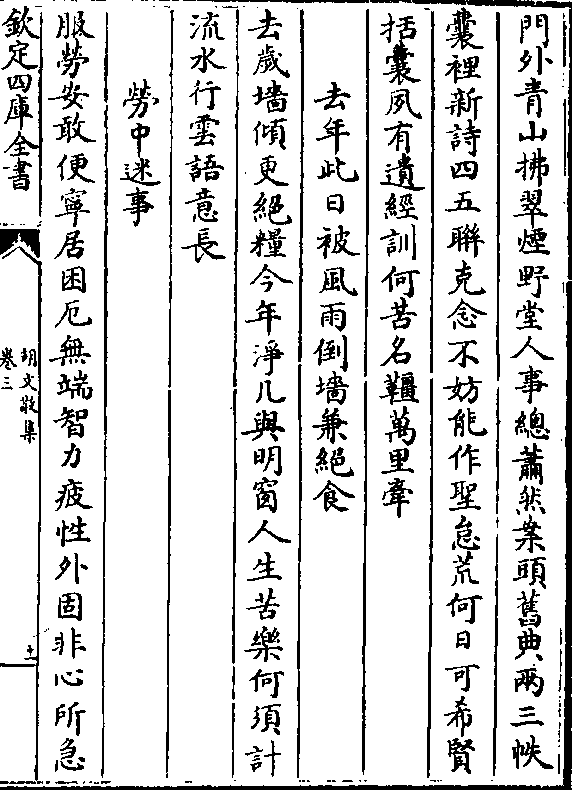 門外青山拂翠煙野堂人事總蕭然案頭舊典兩三帙
囊裡新詩四五聯克念不妨能作聖怠荒何日可希賢
括囊夙有遺經訓何苦名韁萬里牽
去年此日被風雨倒墻兼絕食
去歲墻傾更絕糧今年淨几與明窗人生苦樂何須計
流水行雲語意長
勞中述事
服勞安敢便寧居困厄無端智力疲性外固非心所急
欽定四庫全書
胡文敬集
卷三
十一